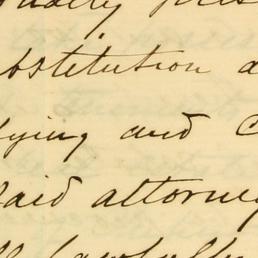 bstitution a
fying and C
said attorney
lawfully